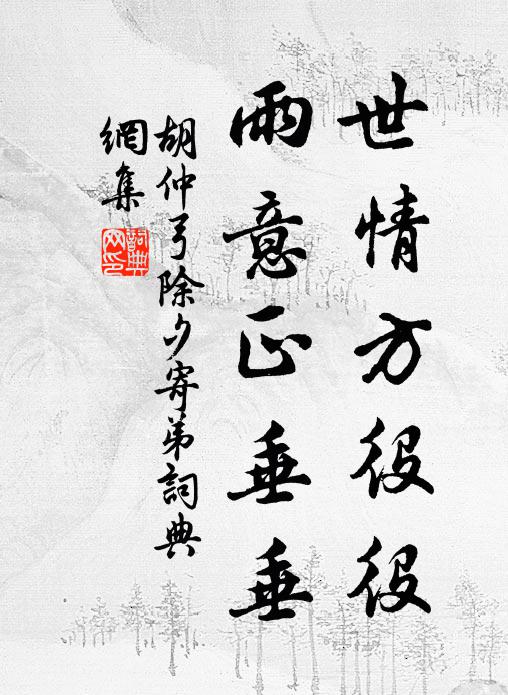 世情方役役
雨意正垂垂
胡仲弓除夕寄弟詞典
網集
詞典网印